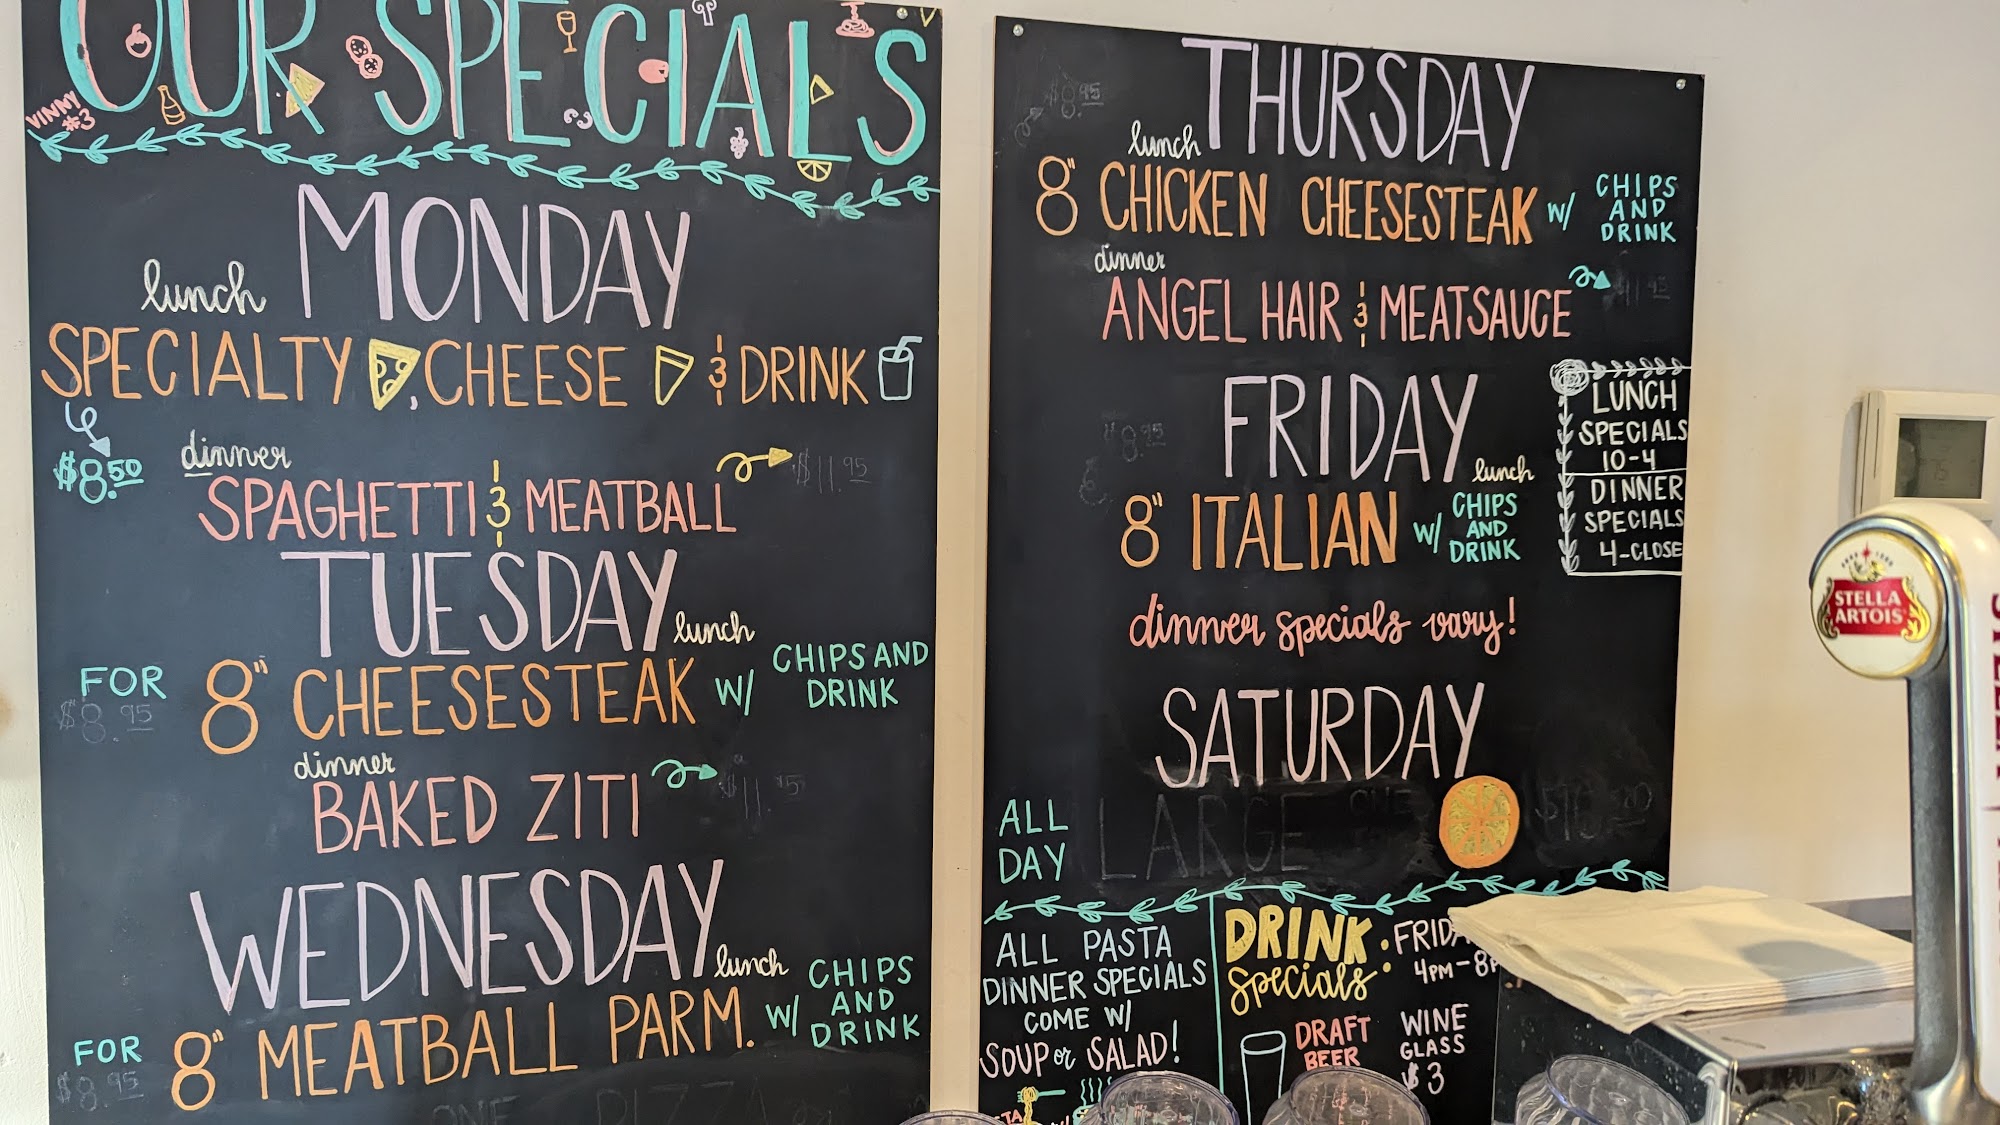 OUR SPECIALS
VINNY
#3
MONDAY
lunch
SPECIALTY, CHEESE & DRINK
$8.50
dinner
$11.95
SPAGHETTI & MEATBALL
TUESDAY
lunch
FOR
$8.95
8" CHEESESTEAK W/ CHIPS AND
DRINK
dinner
BAKED ZITI
WEDNESDAY
lunch
FOR
$8.95
8" MEATBALL PARM. W/ CHIPS
AND
DRINK
ONE PIZZA
THURSDAY
$8.95
lunch
8" CHICKEN CHEESESTEAK W/ CHIPS
AND
DRINK
dinner
ANGEL HAIR & MEATSAUCE
FRIDAY
$8.95
lunch
8" ITALIAN W/ CHIPS
AND
DRINK
dinner specials vary!
LUNCH
SPECIALS
10-4
DINNER
SPECIALS
4-CLOSE
SATURDAY
ALL
DAY
LARGE ONE
ALL PASTA
DINNER SPECIALS
COME W/
SOUP or SALAD!
DRINK
specials:
4PM-8
DRAFT
BEER
WINE
GLASS
$3
STELLA
ARTOIS